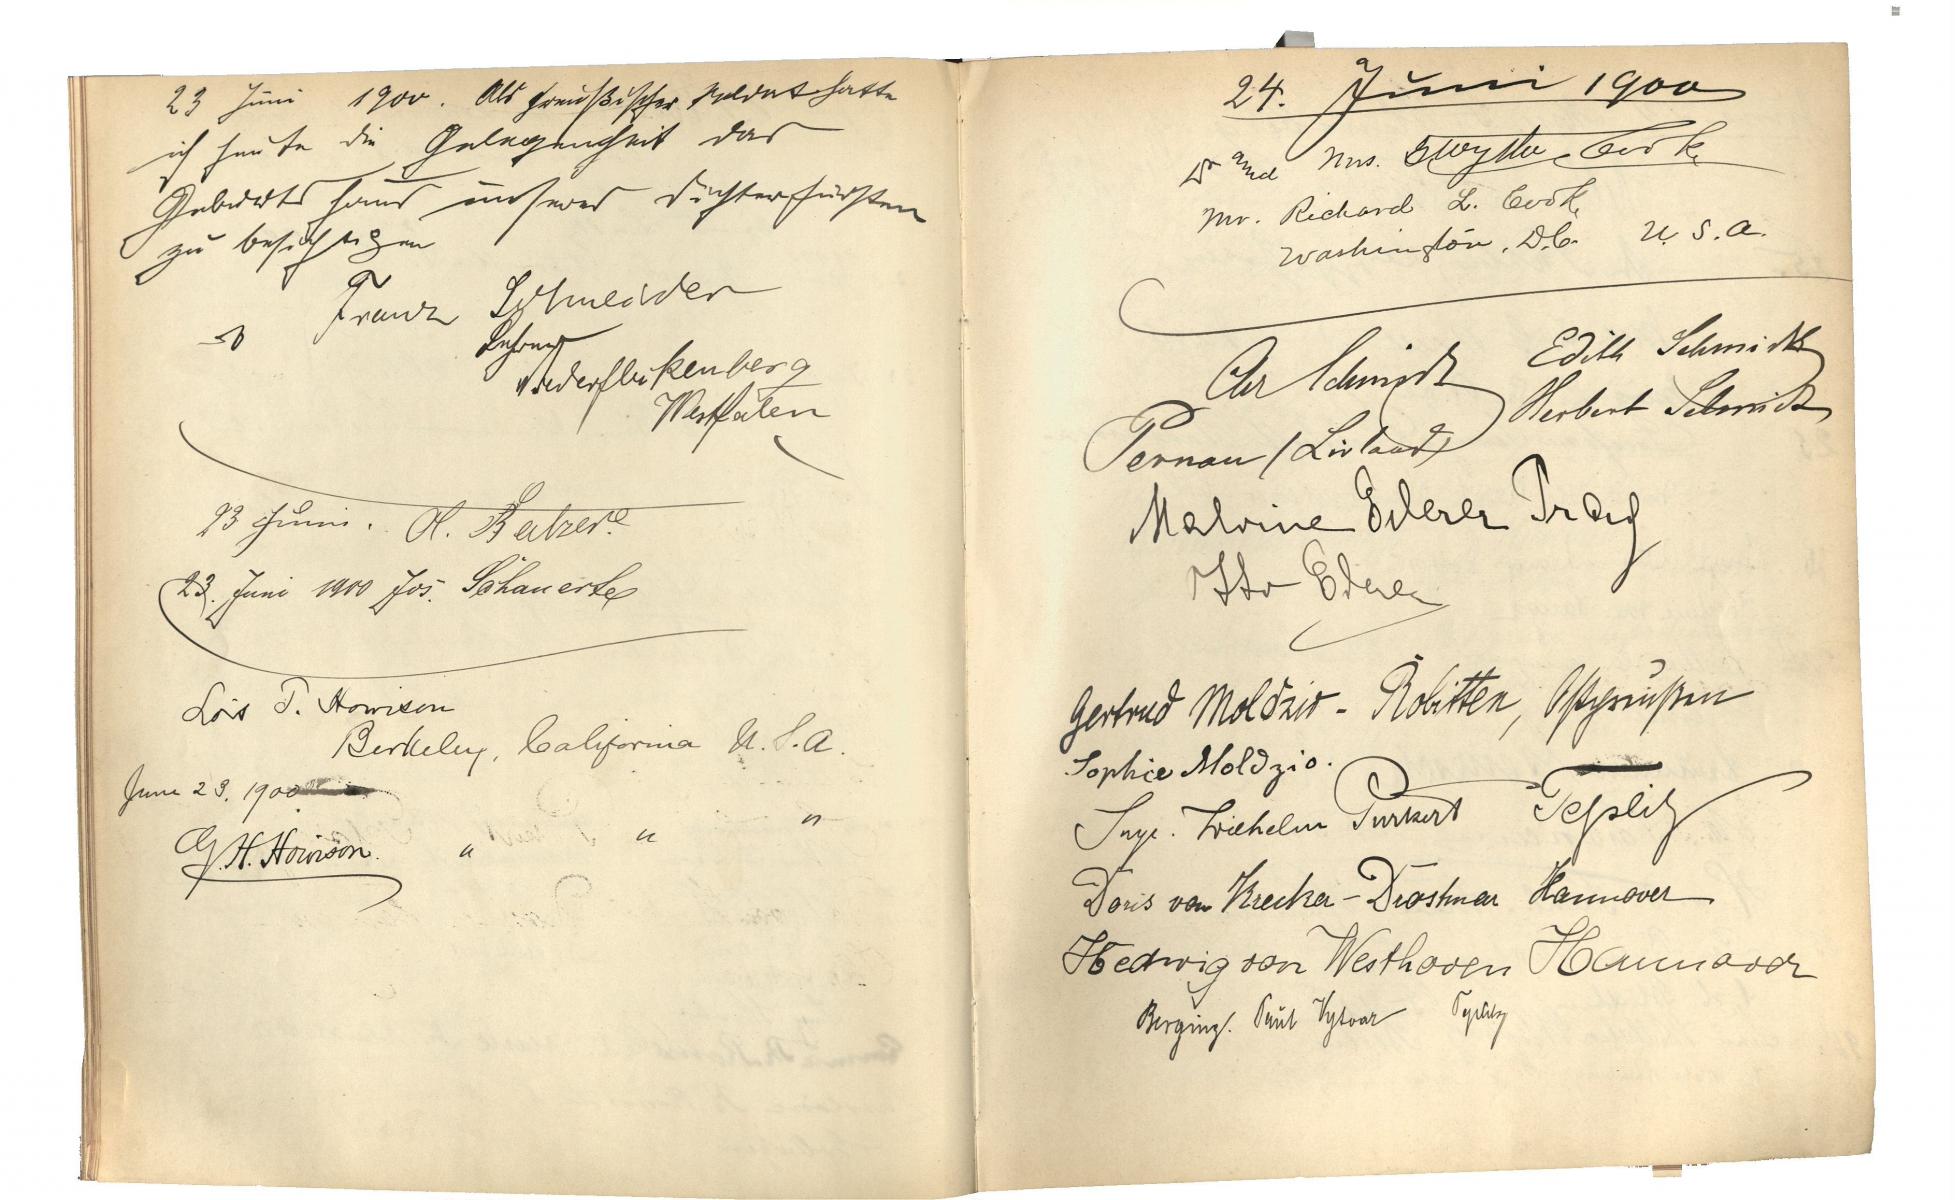 23 Juni 1900. Als preußischer Soldat hatte
ich heute die Gelegenheit das
Geburtshaus unseres Dichterfürsten
zu besichtigen
Franz Schneider
Lehrer
Westfalen
23 Juni. H.
23. Juni 1900 Jos. Schauerte
Lois T. Howison
Berkeley, California U.S.A.
June 23, 1900
G. H. Howison. " " "
24. Juni 1900
Dr and Mrs. Smythe Cook,
Mr. Richard L. Cook,
Washington, D.C. U.S.A.
Chr Schmidt
Edith Schmidt
Herbert Schmidt
Pernau (Livland)
Malvine Ederer Prag
Ederer
Gertrud Moldzio - Robitten, Ostpreußen
Sophie Moldzio.
Inge. Wilhelm Purkert Teplitz
Doris von Hannover
Hedwig von Westhoven Hannover
Berging. Paul Teplitz